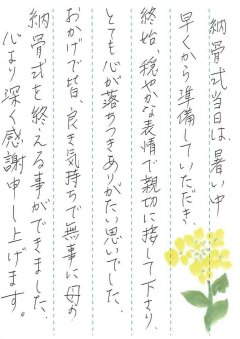 納骨式当日は、暑い中
早くから準備していただき、
終始、穏やかな表情で親切に接して下さり、
とても心が落ちつきありがたい思いでした。
おかげで皆、良き気持ちで無事に母の
納骨式を終える事ができました。
心より深く感謝申し上げます。